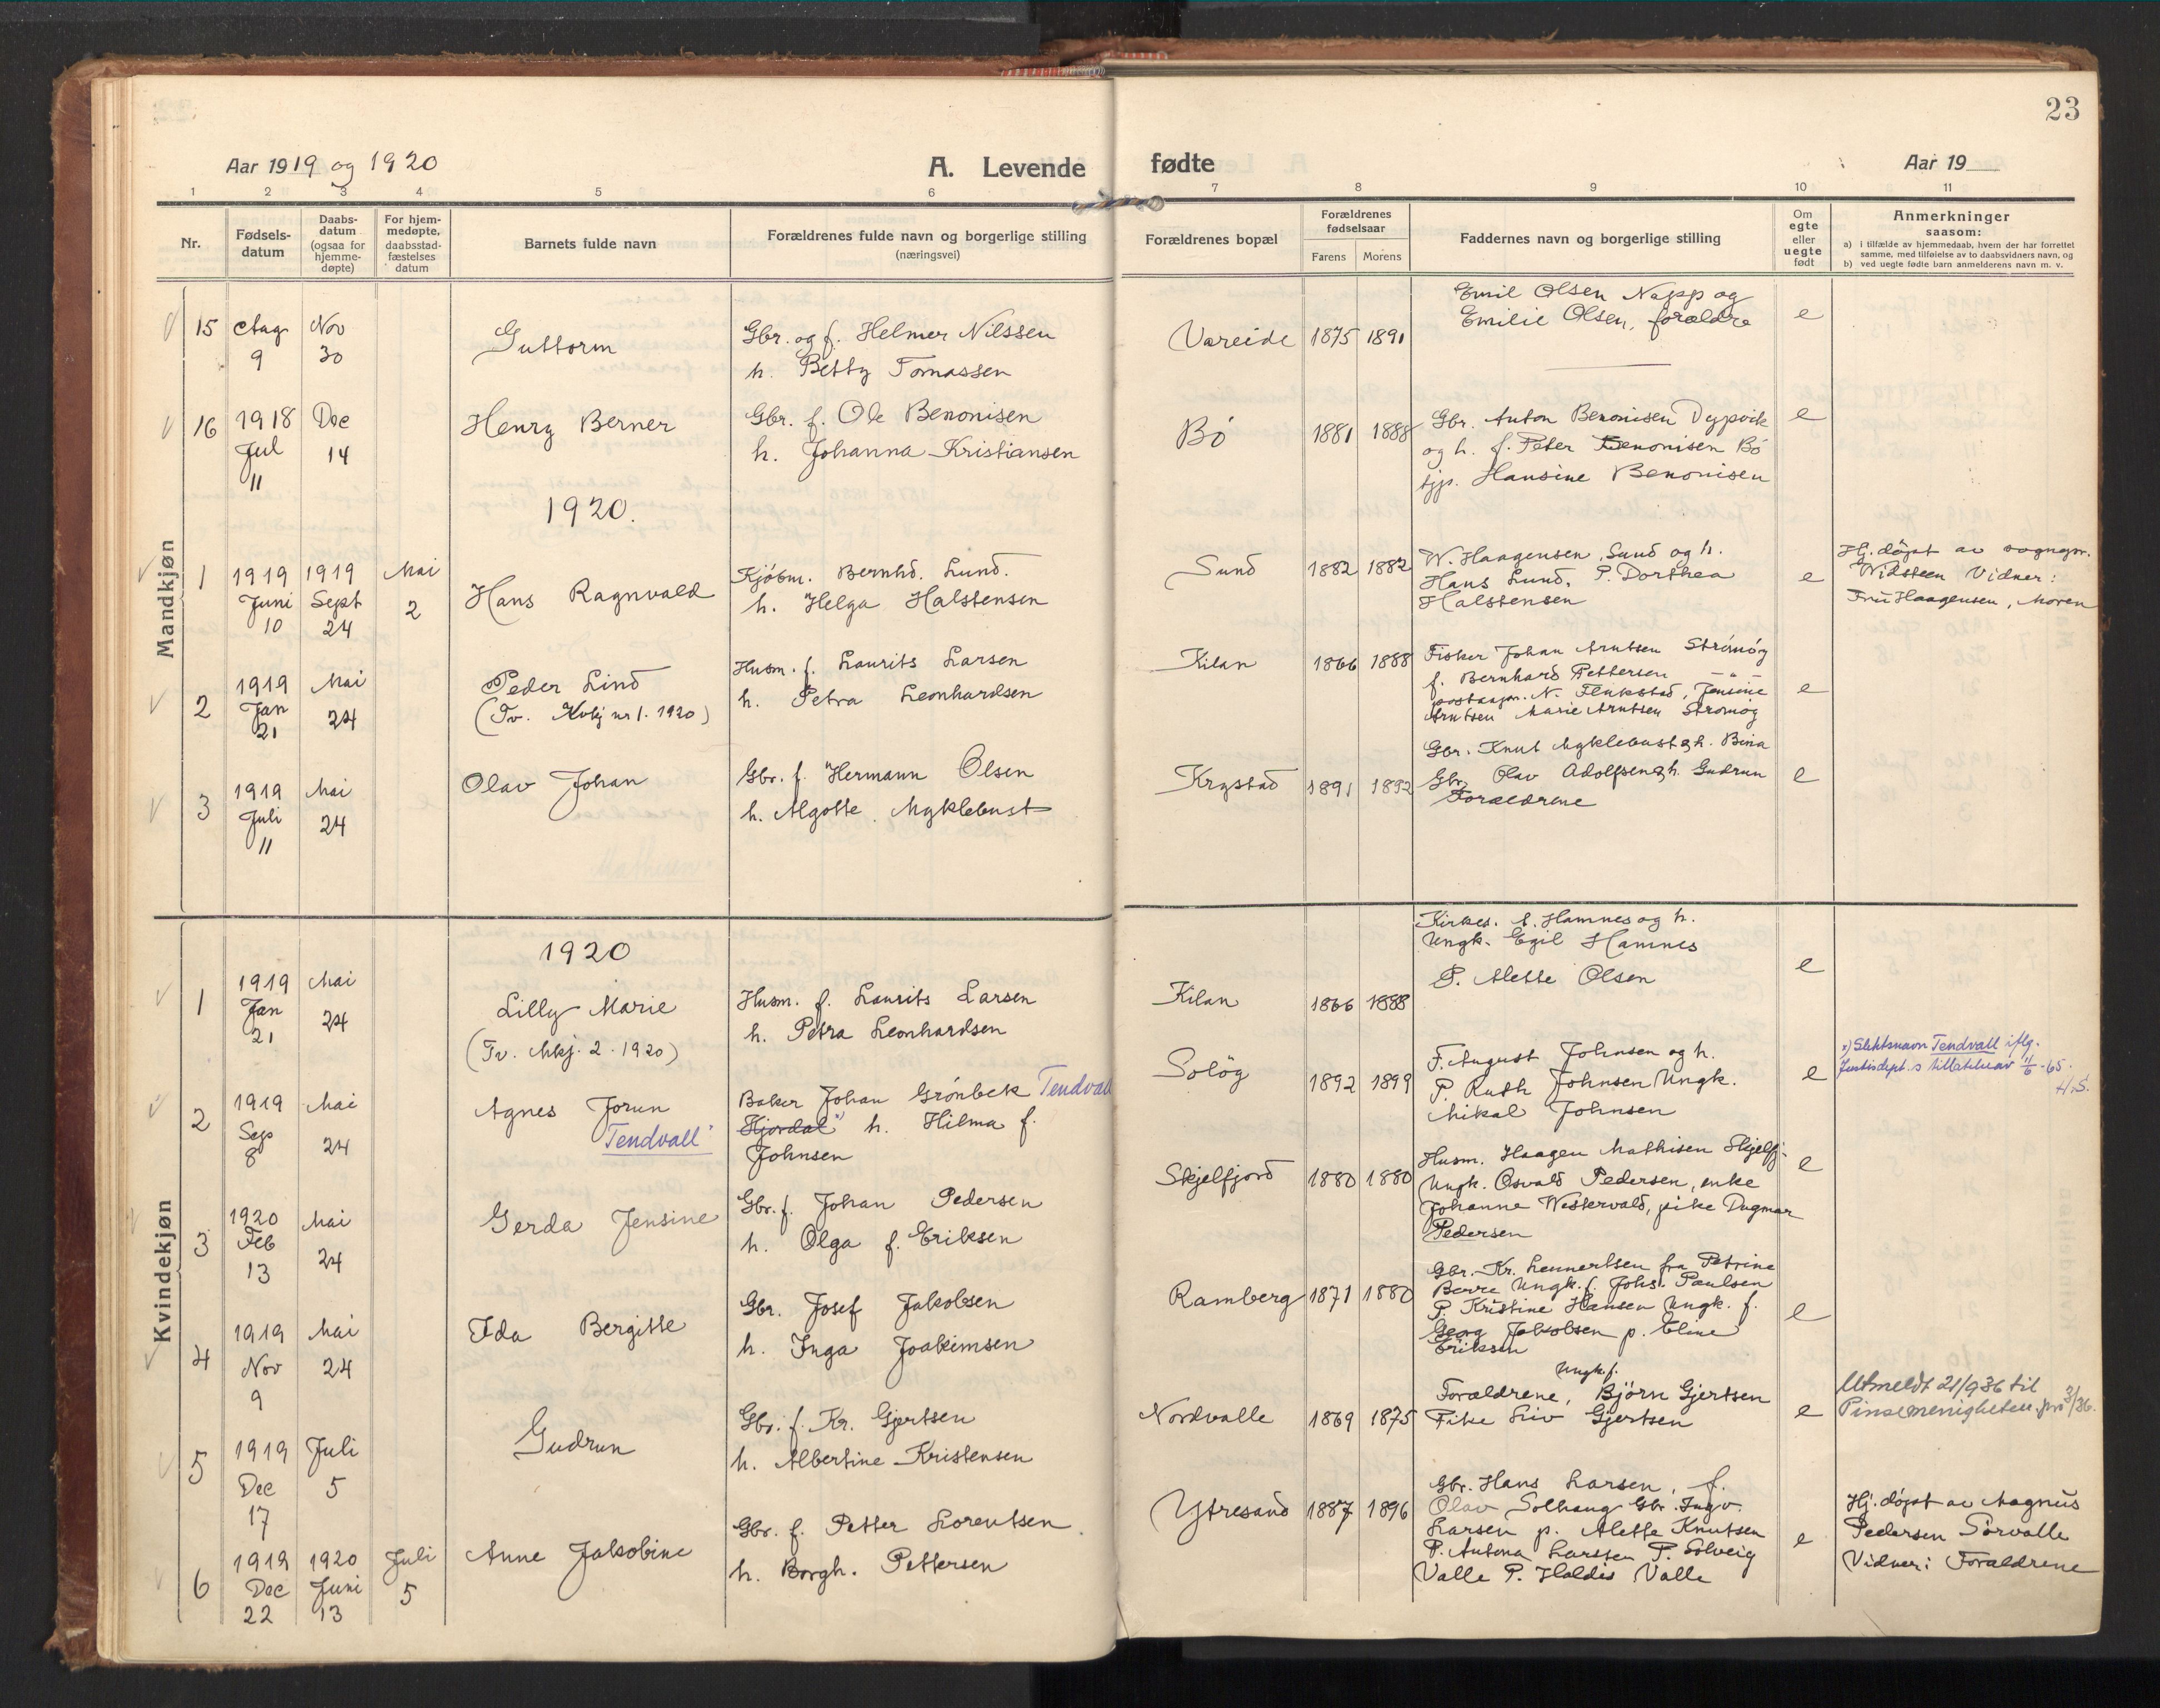 23
Aar 1919 og 1920
A. Levende fødte
Aar 19
1 2 3 4 5 6 7 8 9 10 11
Nr.
Fødsels-
datum
Daabs-
datum
(ogsaa for
hjemme-
døpte)
For hjem-
medøpte,
daabsstad-
fæstelses
datum
Barnets fulde navn
Forældrenes fulde navn og borgerlige stilling
(næringsvei)
Forældrenes bopæl
Forældrenes
fødselsaar
Farens Morens
Faddernes navn og borgerlige stilling
Om
egte
eller
uegte
født
Anmerkninger
saasom:
a) i tilfælde av hjemmedaab, hvem der har forrettet
samme, med tilføielse av to daabsvidners navn, og
b) ved uegte fødte barn anmelderens navn m. v.
Mandkjøn
15 Aug 9
Nov 30
Guttorm
Gbr. og f. Helmer Nilssen
h. Betty Tomassen
Vareide 1875 1891
Emil Olsen Napp og
Emilie Olsen, forældre
e
16 1918 Jul 11
Dec 14
Henry Berner
Gbr. f. Ole Benonisen
h. Johanna Kristiansen
Bö 1881 1888
Gbr. Anton Benonisen Dypvik
og h. f. Peter Benonisen Bö
Hansine Benonisen
e
1920.
1 1919 Juni 10
1919 Sept 24
Mai 2
Hans Ragnvald
Kjöbm. Bernhd. Lund.
h. Helga Halstensen
Sund 1882 1882
W. Haagensen, Sund og h.
Hans Lund, P. Dorthea
Halstensen
e
Hj. döpt av sognepr.
Widsteen Vidner:
Fru Haagensen, Moren
2 1919 Jan 21
Mai 24
Peder Lind
(Tv. Kvkj nr 1. 1920)
Husm. f. Laurits Larsen
h. Petra Leonhardsen
Kilan 1866 1888
Fisker Johan Arntsen Strömöy
f. Bernhard Pettersen — " —
N. Flakstad, Jensine
Arntsen Marie Arntsen Strömöy
e
3 1919 Juli 11
Mai 24
Olav Johan
Gbr. f. Hermann Olsen
h. Algotte Myklebust
Krystad 1891 1892
Gbr. Knut Myklebust og h. Bina
Gbr. Olav Adolfsen og h. Gudrun
Forældrene
e
Kvindekjøn
1920
1 1919 Jan 21
Mai 24
Lilly Marie
(Tv. Mkj. 2. 1920)
Husm. f. Laurits Larsen
h. Petra Leonhardsen
Kilan 1866 1888
Kirkes. E. Hamnes og h.
Ungk. Egil Hamnes
P. Alette Olsen
e
2 1919 Sep 8
Mai 24
Agnes Jorun
Tendvall
Baker Johan Grönbek Tendvall
Hjordal h. Hilma f.
Johnsen
Solöy 1892 1899
F. August Johnsen og h.
P. Ruth Johnsen Ungk.
Mikal Johnsen
e
x) Slektsnavn Tendvall iflg.
Justisdept.s tillatelse av 11/6 -65.
H.S.
3 1920 Feb 13
Mai 24
Gerda Jensine
Gbr. f. Johan Pedersen
h. Olga f. Eriksen
Skjelfjord 1880 1880
Husm. Haagen Mathisen Skjelfj.
Ungk. Osvald Pedersen, enke
Johanne Westervald, pike Dagmar
Pedersen
e
4 1919 Nov 9
Mai 24
Ida Bergitte
Gbr. Josef Jakobsen
h. Inga Joakimsen
Ramberg 1871 1880
Gbr. Kr. Lennertsen fra Petrine
Berre Ungk. f. Johs. Paulsen
P. Kristine Hansen Ungk. f.
Georg Jakobsen p. Eline
Eriksen
e
5 1919 Dec 17
Juli 5
Gudrun
Gbr. f. Kr. Gjertsen
h. Albertine Kristensen
Nordvalle 1869 1875
Ungk. f.
Forældrene, Björn Gjertsen
Pike Liv Gjertsen
e
Utmeldt 21/9 36 til
Pinsemenigheten.
6 1919 Dec 22
1920 Juni 13
Juli 5
Anne Jakobine
Gbr. f. Petter Lorentsen
h. Borgh. Pettersen
Ytresand 1887 1896
Gbr. Hans Larsen, f.
Olav Solhaug Gbr. Ingv.
Larsen p. Alette Knutsen
P. Antona Larssen P. Solveig
Valle P. Haldis Valle
e
Hj. döpt av Magnus
Pedersen Sörvalle
Vidner: Forældrene